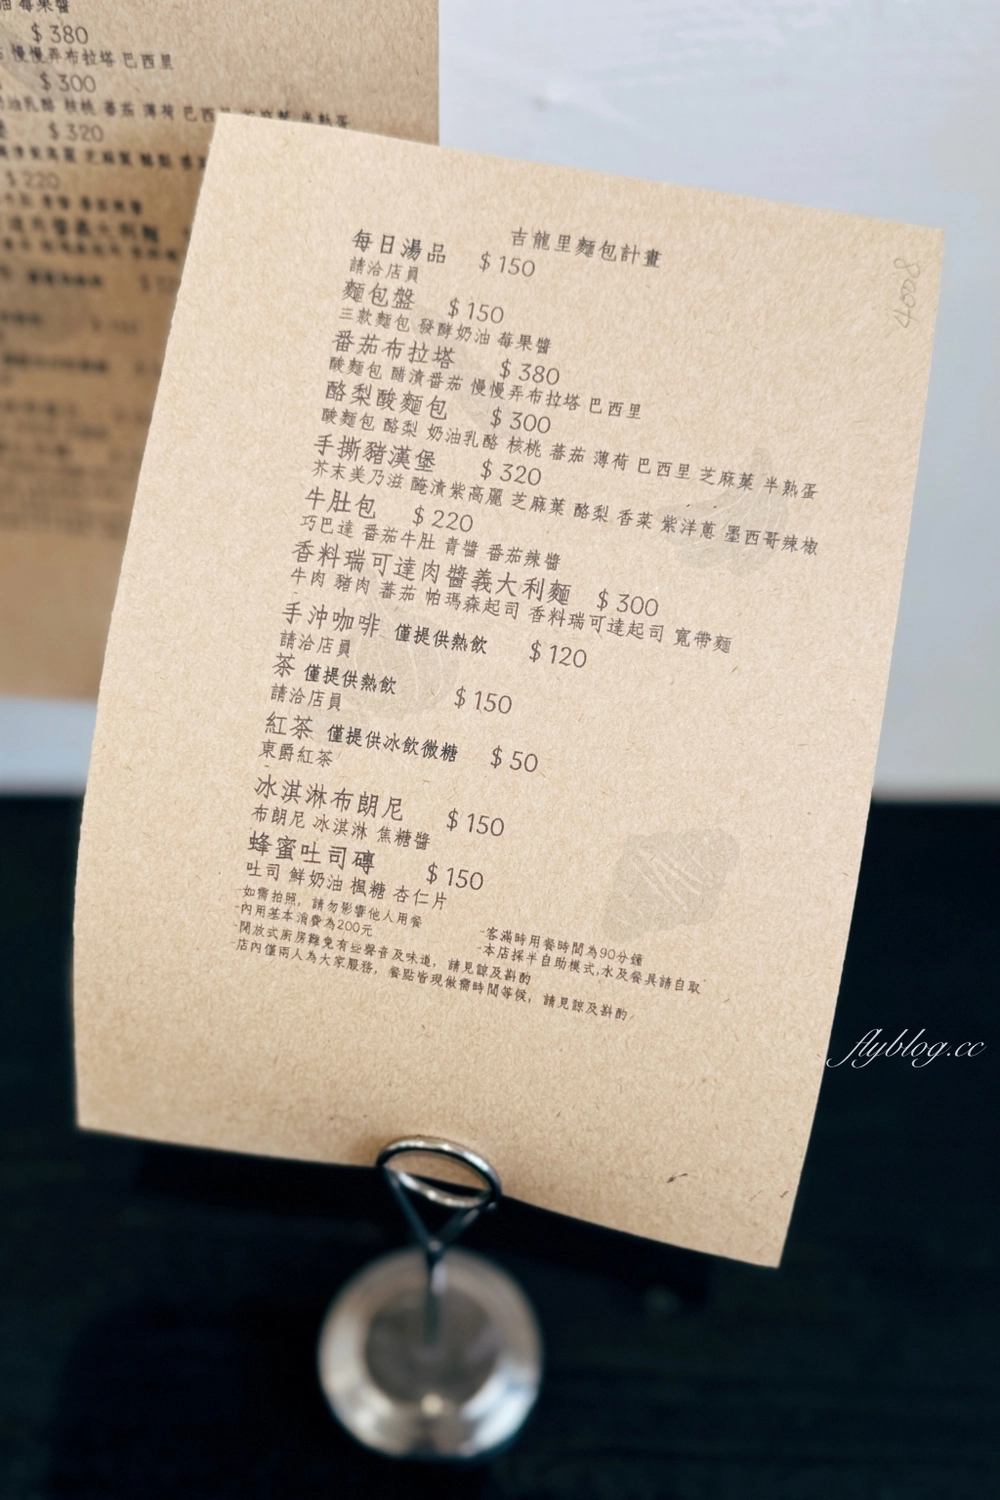 油 莓果醬
$380
慢慢弄布拉塔 巴西里
$300
奶油乳酪 核桃 蕃茄 薄荷 巴西里
$320
$220
吉龍里麵包計畫
4008
每日湯品 $150
請洽店員
麵包盤 $150
三款麵包 發酵奶油 莓果醬
番茄布拉塔 $380
酸麵包 醋漬番茄 慢慢弄布拉塔 巴西里
酪梨酸麵包 $300
酸麵包 酪梨 奶油乳酪 核桃 蕃茄 薄荷 巴西里 芝麻葉 半熟蛋
手撕豬漢堡 $320
芥末美乃滋 醃漬紫高麗 芝麻葉 酪梨 香菜 紫洋蔥 墨西哥辣椒
牛肚包 $220
巧巴達 番茄牛肚 青醬 番茄辣醬
香料瑞可達肉醬義大利麵 $300
牛肉 豬肉 蕃茄 帕瑪森起司 香料瑞可達起司 寬帶麵
手沖咖啡 僅提供熱飲 $120
請洽店員
茶 僅提供熱飲 $150
請洽店員
紅茶 僅提供冰飲微糖 $50
東爵紅茶
冰淇淋布朗尼 $150
布朗尼 冰淇淋 焦糖醬
蜂蜜吐司磚 $150
吐司 鮮奶油 楓糖 杏仁片
-如需拍照，請勿影響他人用餐
-內用基本消費為200元
-客滿時用餐時間為90分鐘
-本店採半自助模式,水及餐具請自取
-開放式廚房難免有些聲音及味道，請見諒及斟酌
-店內僅兩人為大家服務，餐點皆現做需時間等候，請見諒及斟酌
flyblog.cc